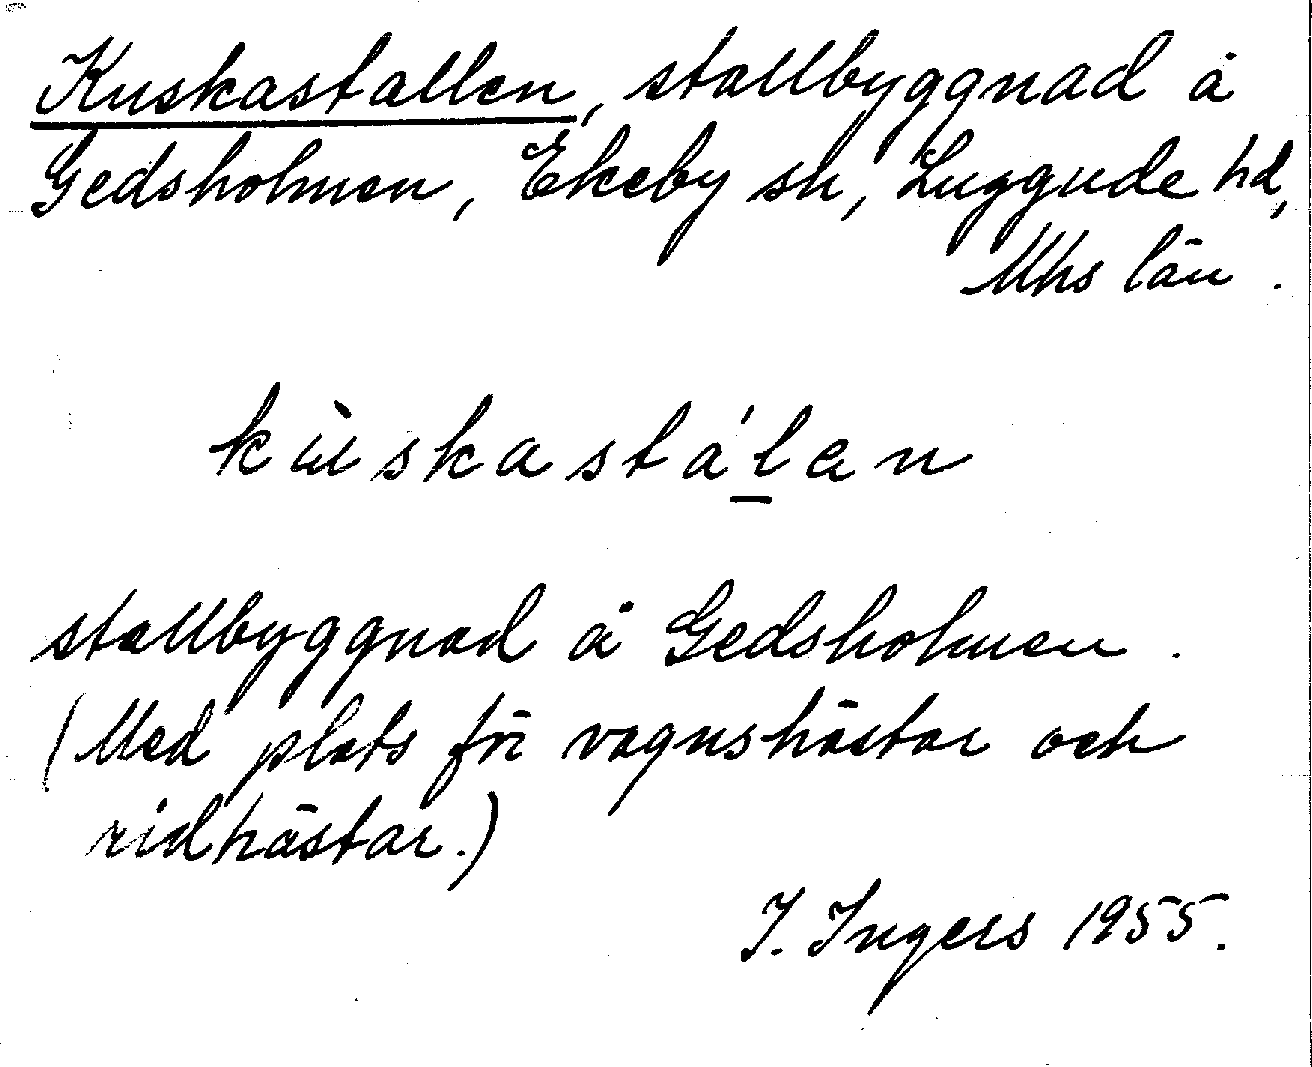 Kuskastallen, stallbyggnad å
Gedsholmen, Ekeby sn, Luggude hd,
Mhs län.
kùskastá'l̲an
stallbyggnad å Gedsholmen.
(Med plats för vagnshästar och
ridhästar.)
I. Ingers 1955.